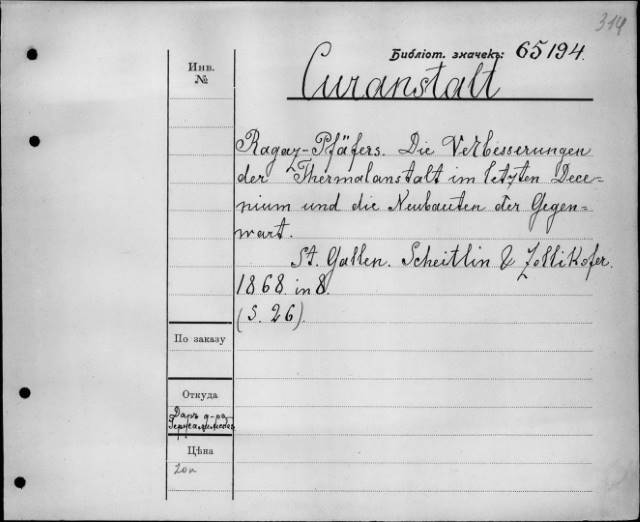 314
Библіот. значекъ: 65194.
Инв.
№
Curanstalt
Ragaz-Pfäfers. Die Verbesserungen
der Thermalanstalt im letzten Dece-
nium und die Neubauten der Gegen-
wart.
St. Gallen. Scheitlin & Zollikofer.
1868. in 8.
(S. 26).
По заказу
Откуда
Даръ д-ра
Цѣна